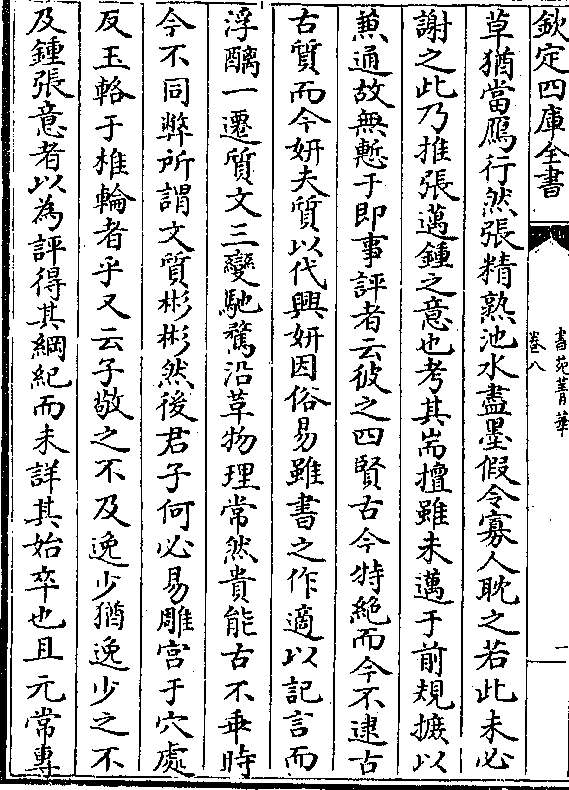 欽定四庫全書
書苑菁華
卷八
一
草猶當鴈行然張精熟池水盡墨假令寡人耽之若此未必
謝之此乃推張邁鍾之意也考其耑擅雖未邁于前規摭以
兼通故無慙于即事評者云彼之四賢古今特絕而今不逮古
古質而今妍夫質以代興妍因俗易雖書之作適以記言而
浮醨一遷質文三變馳騖沿革物理常然貴能古不乖時
今不同弊所謂文質彬彬然後君子何必易雕宮于穴處
反玉輅于椎輪者乎又云子敬之不及逸少猶逸少之不
及鍾張意者以為評得其綱紀而未詳其始卒也且元常專